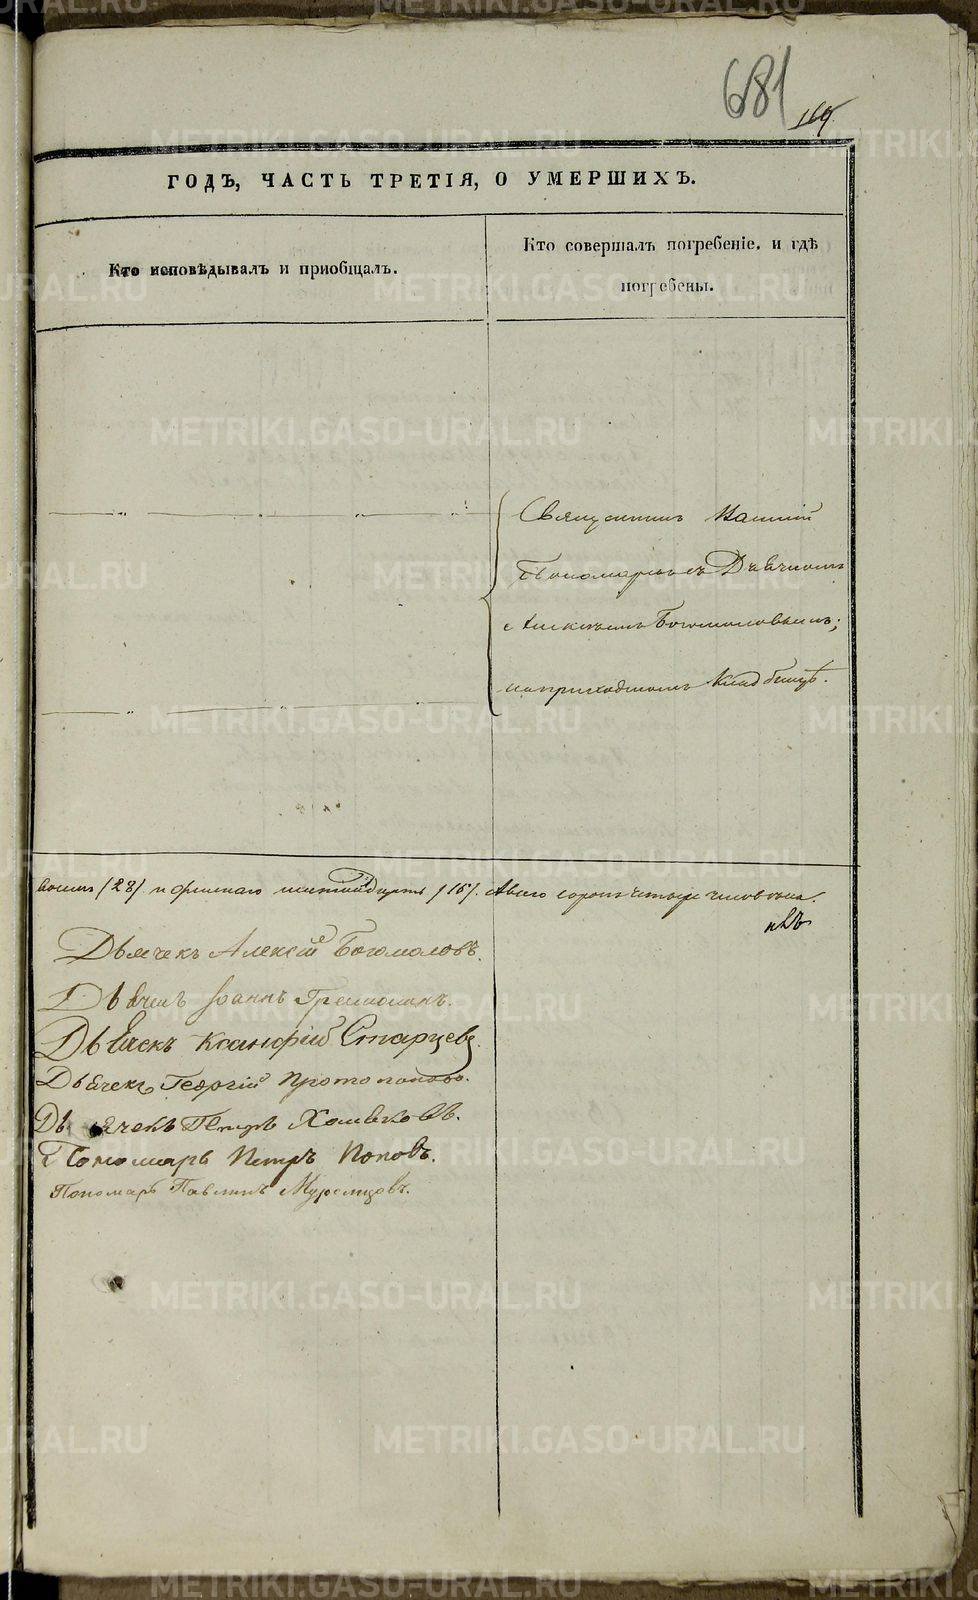 681
119
ГОДЪ, ЧАСТЬ ТРЕТІЯ, О УМЕРШИХЪ.
Кто исповѣдывалъ и пріобщалъ.
Кто совершалъ погребеніе. и гдѣ
погребены.
Священникъ
Пономаревъ съ Дьячкомъ
Алексѣемъ Богомоловымъ;
на приходскомъ Кладбищѣ.
восемь /28/. и женскаго шестнадцать /16/. Авсего сорокъ четыре человѣка.
Дьячекъ Алексій Богомоловъ.
Дьячекъ Іоаннъ
Дьячекъ Ксанфій Старцевъ.
Дьячекъ Георгій Протопоповъ.
Дьячекъ Петръ Хомяковъ.
Пономарь Петръ Поповъ.
Пономарь Павлинъ
METRIKI.GASO-URAL.RU